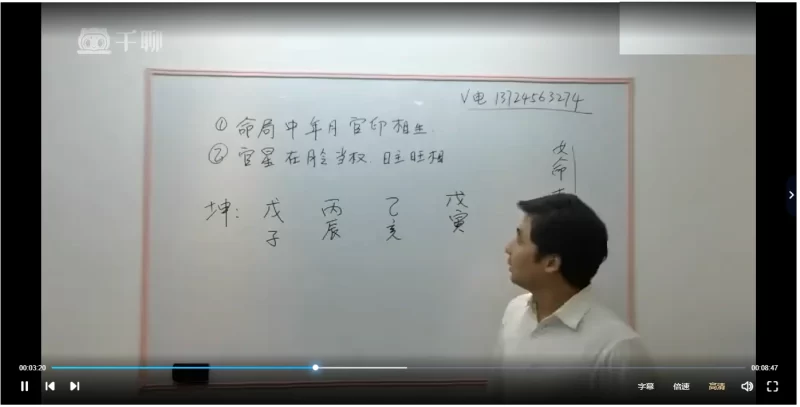 千聊
V电 13724563274
① 命局中年月官印相生.
② 官星在月令当权.日主旺相
女命
坤: 戊 丙 乙 戊
子 辰 亥 寅
00:03:20
00:08:47
字幕 倍速 高清